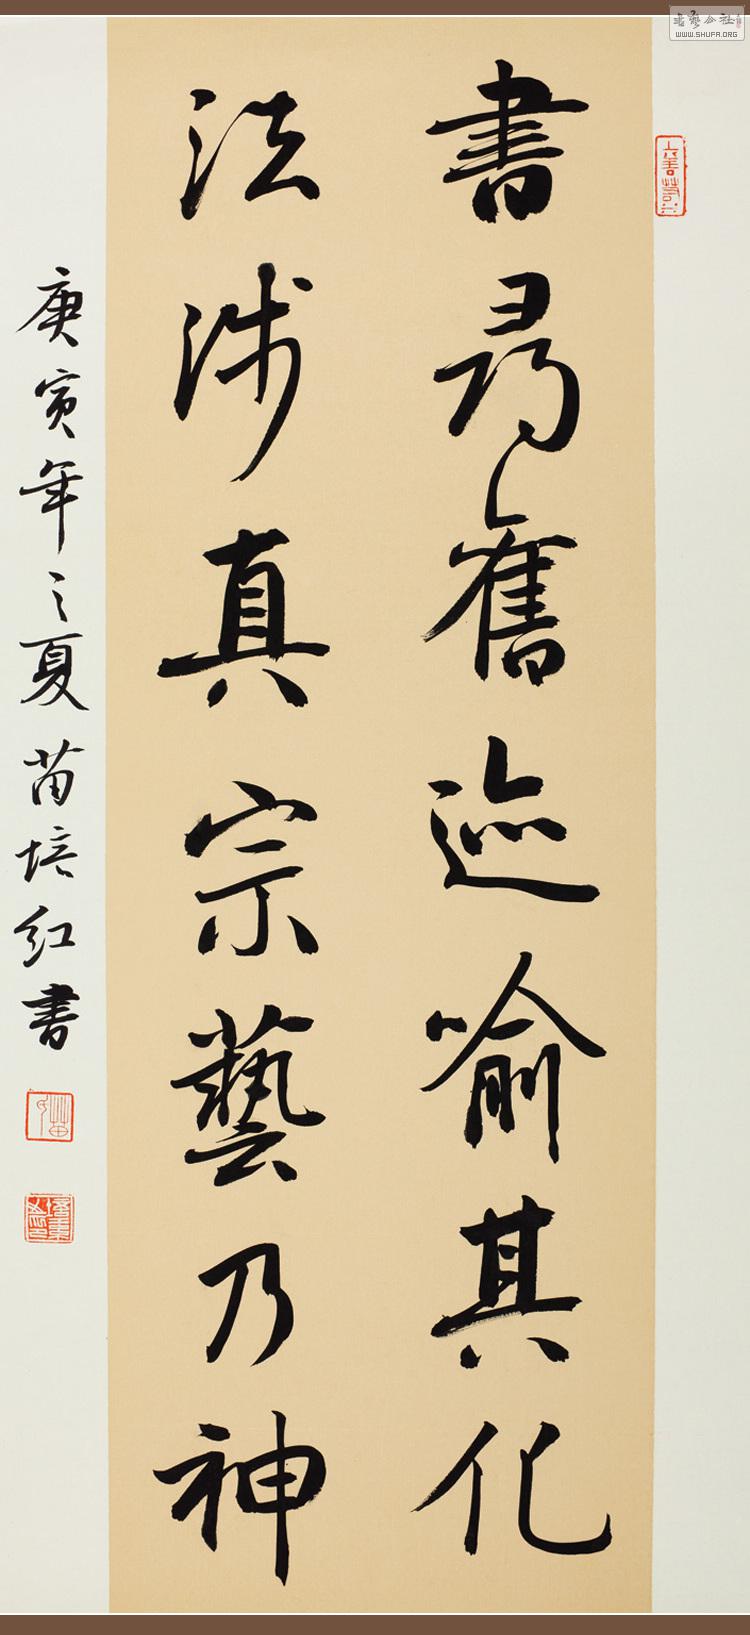 書尋舊迹喻其化
法涉真宗藝乃神
庚寅年之夏苗培红書
WWW.SHUFA.ORG